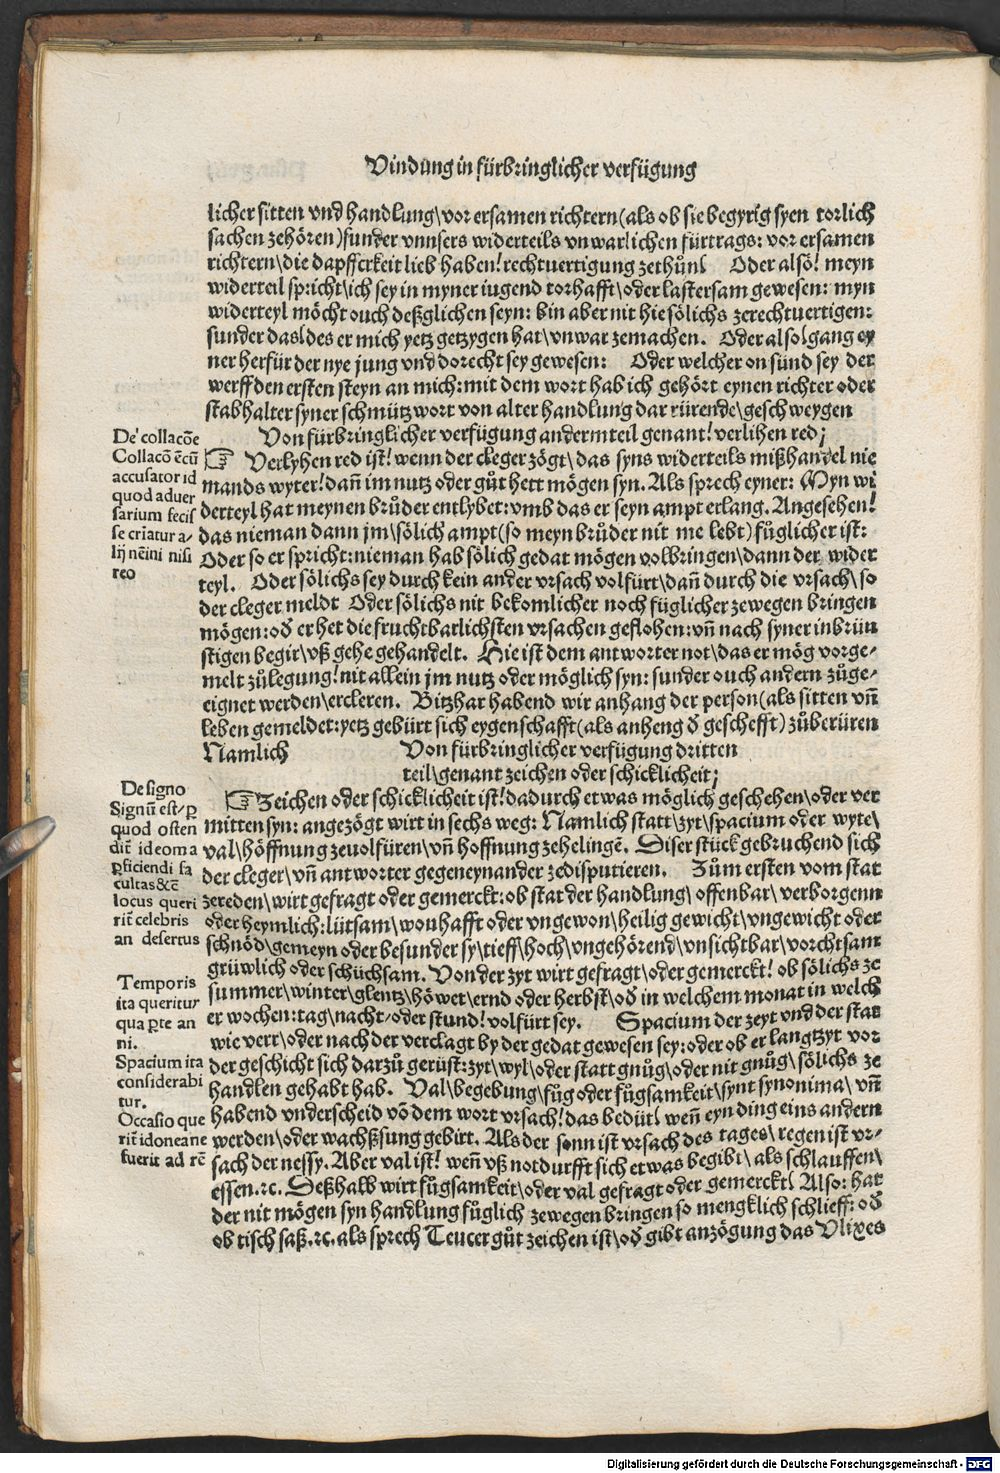 Vindung in fürbringlicher verfügung
licher sitten vnd handlung\ vor ersamen richtern (als ob sie begyrig syen torlich
sachen zehören) sunder vnnsers widerteils vnwarlichen fürtrags: vor ersamen
richtern\ die dapfferkeit lieb haben! rechtuertigung zethůn\ Oder alsö! meyn
widerteil spricht\ ich sey in myner iugend torhafft\ oder lastersam gewesen: myn
widerteyl möcht ouch deßglichen seyn: bin aber nit hie sölichs zerechtuertigen:
sunder das\ des er mich yetz getzygen hat\ vnwar zemachen. Oder also\ gang ey
ner herfür der nye jung vnd dorecht sey gewesen: Oder welcher on sünd sey der
werff den ersten steyn an mich: mit dem wort hab ich gehört eynen richter oder
stabhalter syner schmützwort von alter handlung dar rürende\ geschweygen
Von fürbringlicher verfügung andermteil genant! verlihen red;
☞ Verlyhen red ist! wenn der cleger zögt\ das syns widerteils mißhandel nie
mands wyter! dañ im nutz oder gůt hett mögen syn. Als sprech eyner: Myn wi
derteyl hat meynen brůder entlybet: vmb das er seyn ampt erlang. Angesehen!
das nieman dann jm\ sölich ampt (so meyn brůder nit me lebt) fůglicher ist:
Oder so er spricht: nieman hab sölich gedat mögen volbringen\ dann der wider
teyl. Oder sölichs sey durch kein ander vrsach volfürt\ dañ durch die vrsach\ so
der cleger meldt Oder sölichs nit bekomlicher noch füglicher zewegen bringen
mögen: oď er het die fruchtbarlichsten vrsachen geflohen: vñ nach syner inbrün
stigen begir\ vß gehe gehandelt. Hie ist dem antworter not\ das er mög vorge-
melt zůlegung! nit allein jm nutz oder möglich syn: sunder ouch andern zůge-
eignet werden\ ercleren. Bitzhar habend wir anhang der person (als sitten vñ
leben gemeldet: yetz gebürt sich eygenschafft (als anheng ď geschefft) zůberüren
Namlich Von fürbringlicher verfügung dritten
teil\ genant zeichen oder schicklicheit;
☞ Zeichen oder schicklicheit ist! dadurch etwas möglich geschehen\ oder ver
mitten syn: angezögt wirt in sechs weg: Namlich statt\ zyt\ spacium oder wyte\
val\ höffnung zeuolfüren\ vñ hoffnung zehelingē. Diser stück gebruchend sich
der cleger\ vñ antworter gegeneynander zedisputieren. Zům ersten vom stat
zereden\ wirt gefragt oder gemerckt: ob stat der handlung\ offenbar\ verborgenn
oder heymlich: lütsam\ wonhafft oder vngewon\ heilig gewicht\ vngewicht oder
schnöd\ gemeyn oder besunder sy\ tieff\ hoch\ vngehörend\ vnsichtbar\ vorchtsam
grüwlich oder schüchsam. Von der zyt wirt gefragt\ oder gemerckt! ob sölichs ze
summer\ winter\ glentz\ höwet\ ernd oder herbst\ oď in welchem monat in welch
er wochen: tag\ nacht\ oder stund! volfürt sey. Spacium der zeyt vnd der stat
wie verr\ oder nach der verclagt by der gedat gewesen sey: oder ob er langtzyt vor
der geschicht sich darzů gerüst: zyt\ wyl\ oder statt gnůg\ oder nit gnůg\ sölichs ze
handlen gehabt hab. Val\ begebung\ fůg oder fůgsamkeit\ synt synonima\ vñ
habend vnderscheid vō dem wort vrsach! das bedüt\ weñ eyn ding eins andern
werden\ oder wachßsung gebirt. Als der sonn ist vrsach des tages\ regen ist vr-
sach der nessy. Aber val ist! weñ vß notdurfft sich etwas begibt\ als schlauffen\
essen. ⁊c. Deßhalb wirt fůgsamkeit\ oder val gefragt oder gemerckt\ Also: hat
der nit mögen syn handlung füglich zewegen bringen so mengklich schlieff: oď
ob tisch saß. ⁊c. als sprech Teucer gůt zeichen ist\ oď gibt anzögung das Vlixes
De collacōe
Collacō ē cū
accusator id
quod aduer
sarium fecis
se crīatur a-
lij nēini nisi
reo
De signo
Signū est/ ꝑ
quod osten
dit̄ idoema
ꝑficiendi fa
cultas &c̄
locus queri
rit̄ celebris
an desertus
Temporis
ita queritur
qua ꝑte an
ni.
Spacium ita
considerabi
tur.
Occasio que
rit̄ idonea ne
fuerit ad rē
Digitalisierung gefördert durch die Deutsche Forschungsgemeinschaft - DFG